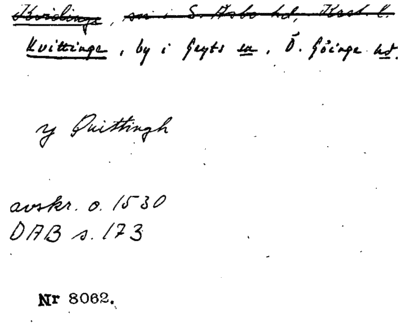 Kvidinge, sn i S. Åsbo hd, Krist. l.
Kvittinge, by i Gryts sn, Ö. Göinge hd.
y Quittingh
avskr. o. 1530
DAB s. 173
Nr 8062.